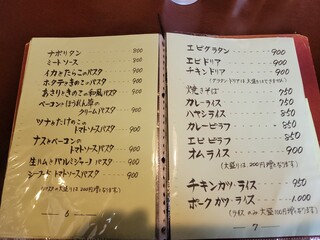 ナポリタン 800
ミートソース 800
イカとたらこのパスタ 900
ホタテときのこのパスタ 900
あさりときのこの和風パスタ 900
ベーコンとほうれん草の
クリームパスタ 900
ツナとたけのこの
トマトソースパスタ 900
ナスとベーコンの
トマトソースパスタ 900
生ハムとパルミジャーノパスタ 900
シーフードトマトソースパスタ 900
(パスタの大盛りは200円増になります)
6
エビグラタン 900
エビドリア 900
チキンドリア 900
(グラタン・ドリアは大盛りはできません)
焼きそば 750
カレーライス 750
ハヤシライス 850
カレーピラフ 850
エビピラフ 850
オムライス 900
(大盛りは200円増になります)
チキンカツ・ライス 950
ポークカツ・ライス 1.000
(ライスのみ大盛100円増になります)
7